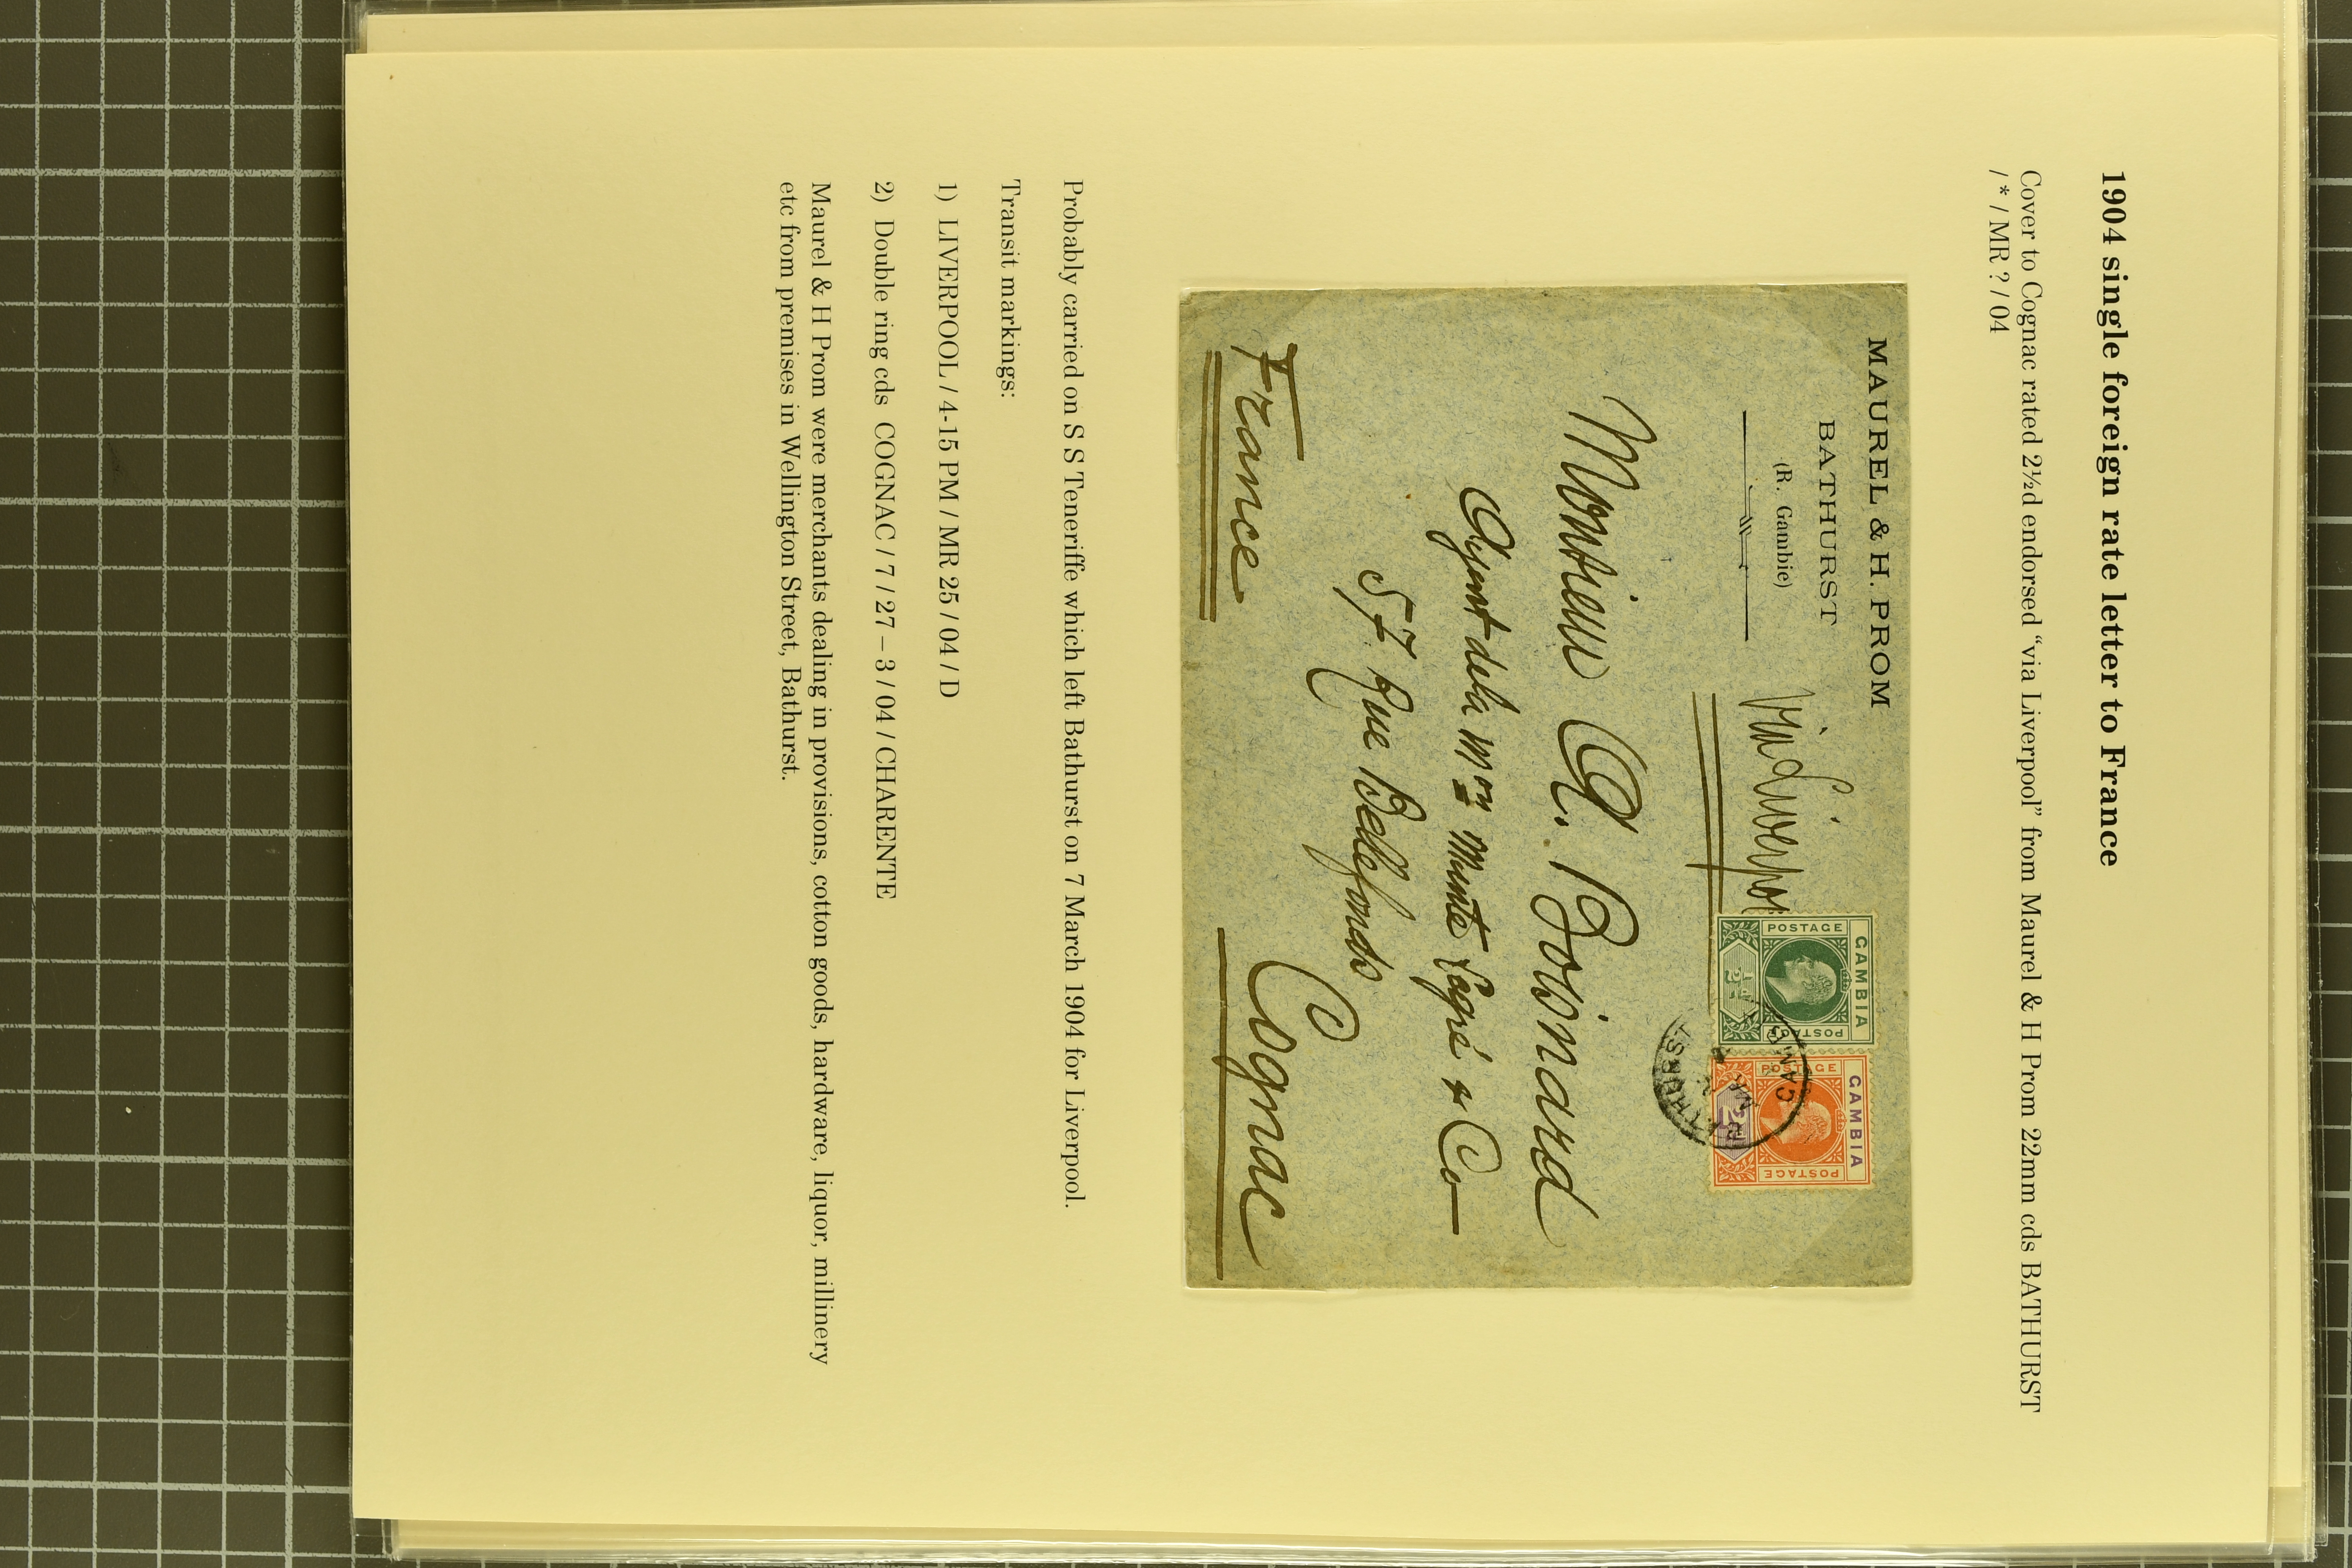 1904 single foreign rate letter to France
Cover to Cognac rated 2½d endorsed “via Liverpool” from Maurel & H Prom 22mm cds BATHURST
/ * / MR ? / 04
MAUREL & H. PROM
BATHURST
(R. Gambie)
Via Liverpool
GAMBIA
POSTAGE
POSTAGE
½d
GAMBIA
POSTAGE
POSTAGE
2d
BATHURST
MR
GAMBIA
Monsieur A. Boisnard
Agent de la Mon
57 Rue Bellefonds
Cognac
France
Probably carried on S S Teneriffe which left Bathurst on 7 March 1904 for Liverpool.
Transit markings:
1) LIVERPOOL / 4-15 PM / MR 25 / 04 / D
2) Double ring cds COGNAC / 7 / 27 – 3 / 04 / CHARENTE
Maurel & H Prom were merchants dealing in provisions, cotton goods, hardware, liquor, millinery
etc from premises in Wellington Street, Bathurst.